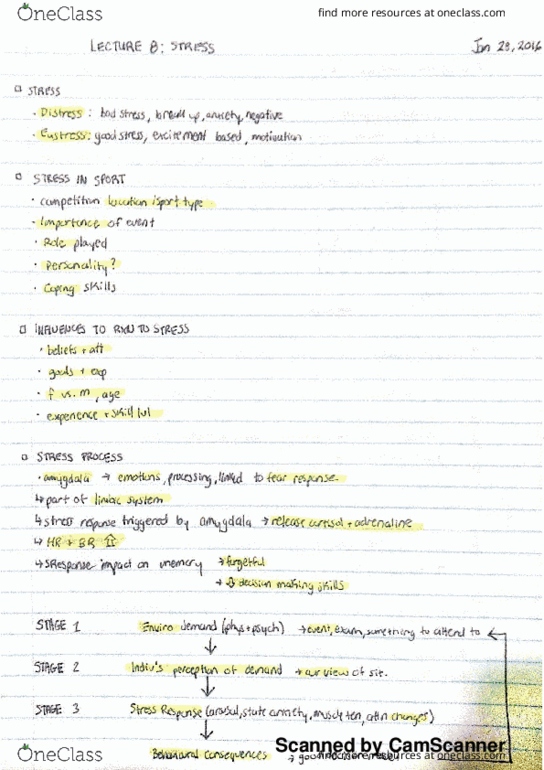 OneClass find more resources at oneclass.com
LECTURE 8: STRESS Jan 28, 2016
STRESS
· Distress: bad stress, break up, anxiety, negative
· Eustress: good stress, excitement based, motivation
STRESS IN SPORT
· competition location + sport type
· Importance of event
· Role played
· Personality?
· Coping skills
INFLUENCES TO RXN TO STRESS
· beliefs + att
· goals + exp
· f vs. m, age
· experience + skill lvl
STRESS PROCESS
· amygdala → emotions, processing, linked to fear response.
↳ part of limbic system
↳ stress response triggered by amygdala → release cortisol + adrenaline
↳ HR + BR ⇧
↳ SResponse impact on memory → forgetful
→ ⇩ decision making skills
STAGE 1 Enviro demand (phys + psych) → event, exam, something to attend to
STAGE 2 Indiv's perception of demand → our view of sit.
STAGE 3 Stress Response (arousal, state anxiety, muscle ten, attn changes)
Behavioural consequences → good
Scanned by CamScanner
OneClass find more resources at oneclass.com